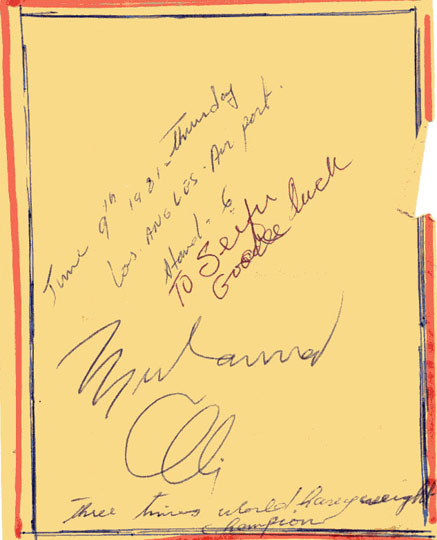 June 9th 1981 - Thursday
Los. ANGLOS. Air port.
Hand. &
To Seifu
Goode luck
Muhammad
Ali
Three times world havey weight
Champion